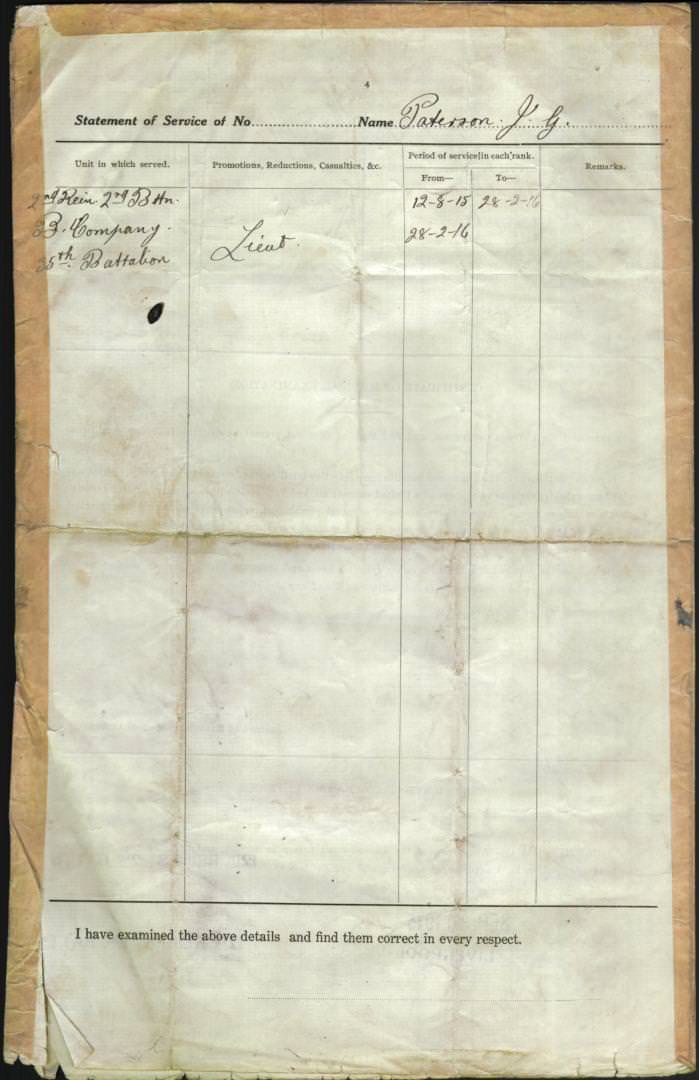 4
Statement of Service of No.................... Name Paterson. J. G.
Unit in which served. Promotions, Reductions, Casualties, &c. Period of service in each rank. Remarks.
From— To—
2nd Rein. 2nd Bttn. 12-8-15 28-2-16
B. Company. 28-2-16
35th Battalion Lieut.
I have examined the above details and find them correct in every respect.